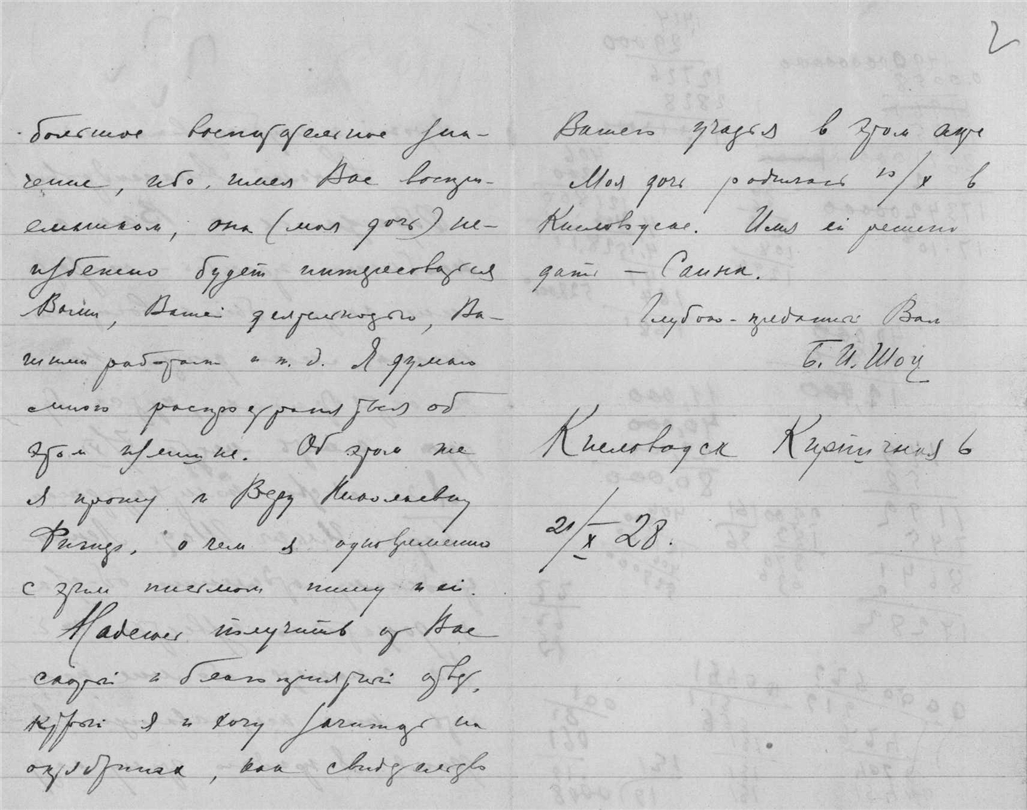 2
большое воспитательное зна-
чение, ибо, имея Вас воспри-
емником, она (моя дочь) не-
избежно будет интересоваться
Вами, Вашей деятельностью, Ва-
шими работами и т. д. Я думаю
много распространяться об
этом излишне. Об этом же
я прошу и Веру Николаевну
Фигнер, о чем я одновременно
с этим письмом пишу и ей.
Надеюсь получить от Вас
скорый и благоприятный ответ,
который я и хочу зачитать на
октябринах, как свидетельство
Вашего участия в этом акте
Моя дочь родилась 10/X в
Кисловодске. Имя ей решено
дать — Саина.
Глубоко-преданный Вам
Б. И. Шоц
Кисловодск Кирпичная 6
21/X-28.